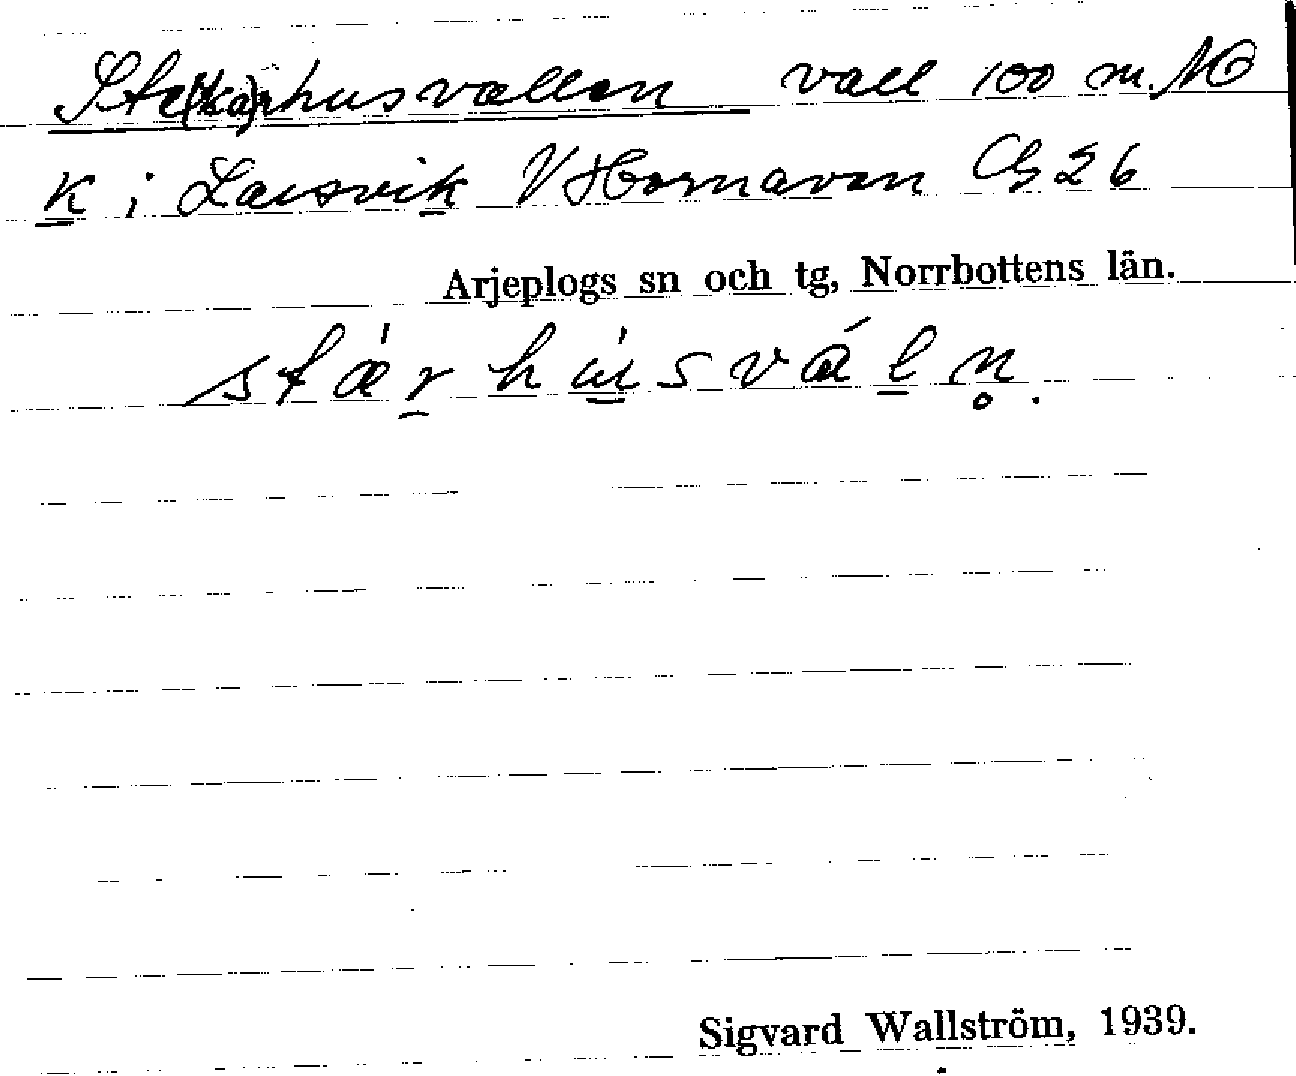 Stä(ka)rhusvallen vall 100 m. NO
k i Laisvik V Hornavan Cb 26
Arjeplogs sn och tg, Norrbottens län.
stä́rhúsváln̥.
Sigvard Wallström, 1939.